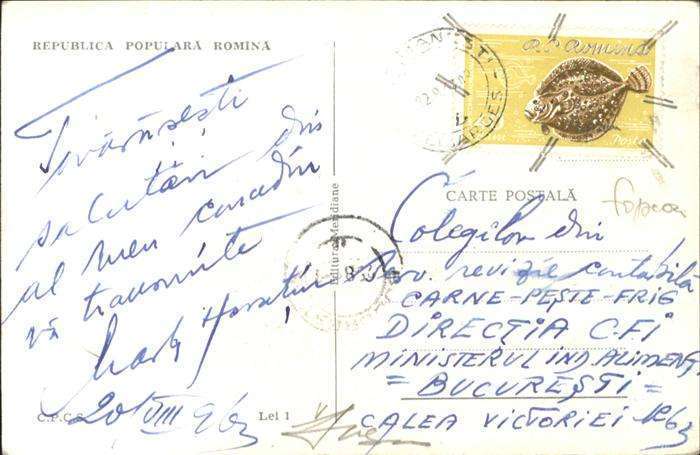 REPUBLICA POPULARĂ ROMÎNĂ
Tovărășești
salutări din
al meu concediu
vă transmite
Horațiu
20/VIII 963
C.P.C.S.
Lei 1
Editura Meridiane
R.P. Romînă
Posta
CARTE POȘTALĂ
Colegilor din
Serv. revizie contabilă
CARNE-PEȘTE-FRIG
DIRECȚIA C.F.I
MINISTERUL IND. ALIMENT.
= BUCUREȘTI =
CALEA VICTORIEI